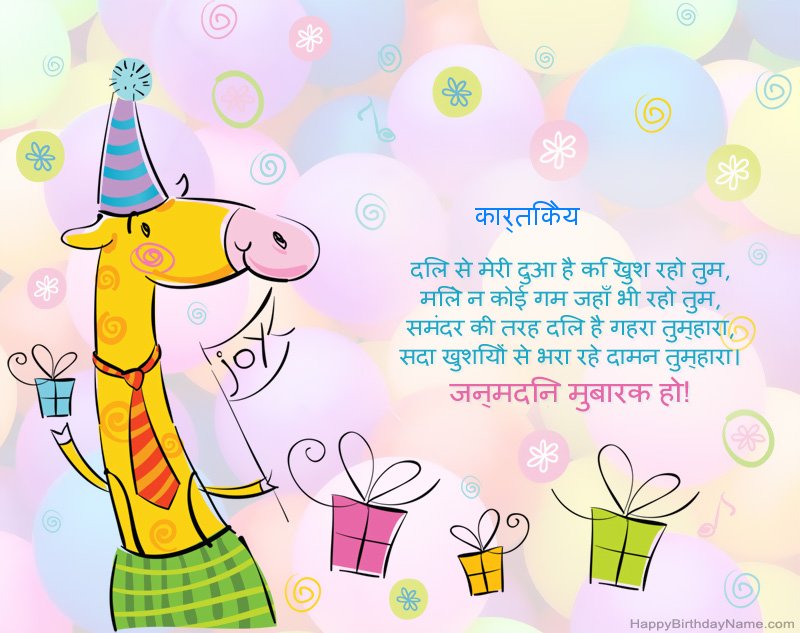 कार्तिकेय
दिल से मेरी दुआ है कि खुश रहो तुम,
मिले न कोई गम जहाँ भी रहो तुम,
समंदर की तरह दिल है गहरा तुम्हारा,
सदा खुशियों से भरा रहे दामन तुम्हारा।
जन्मदिन मुबारक हो!
joy
HappyBirthdayName.com